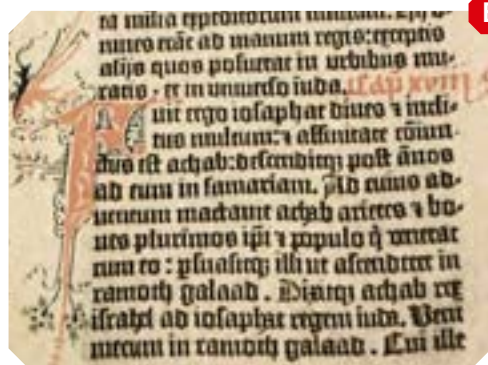 ta milia expeditorum militum. Hij o-
mnes erāt ad manum regis: exceptis
alijs quos posuerat in urbibus mu-
ratis · et in universo iuda. Cap. XVIII
Fuit ergo iosaphat dives ⁊ incli-
tus multum: ⁊ affinitate cōiun-
ctus est achab: descenditqꝫ post ānos
ad eum in samariam. Ad cuius ad-
ventum mactavit achab arietes ⁊ bo-
ves plurimos ip̄i ⁊ populo q̇ venerat
cum eo : p̱suasitqꝫ illi ut ascenderet in
ramoth galaad . Dixitqꝫ achab rex
israhel ad iosaphat regem iuda. Veni
mecum in ramoth galaad . Cui ille